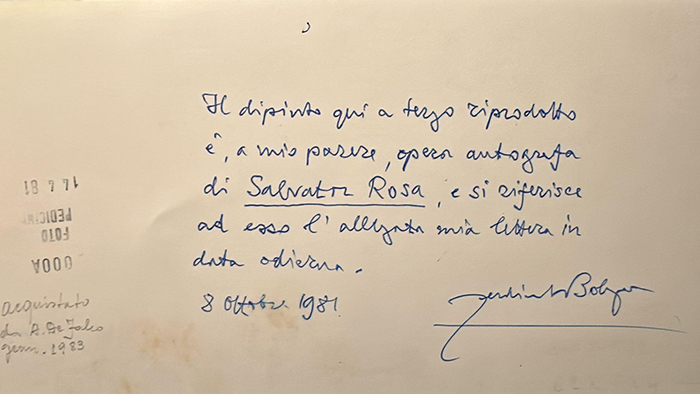 Il dipinto qui a tergo riprodotto
è, a mio parere, opera autografa
di Salvator Rosa, e si riferisce
ad esso l'allegata mia lettera in
data odierna.
8 Ottobre 1981.
14 4 81
FOTO
000A
acquistato
da A. De Falco
genn. 1983